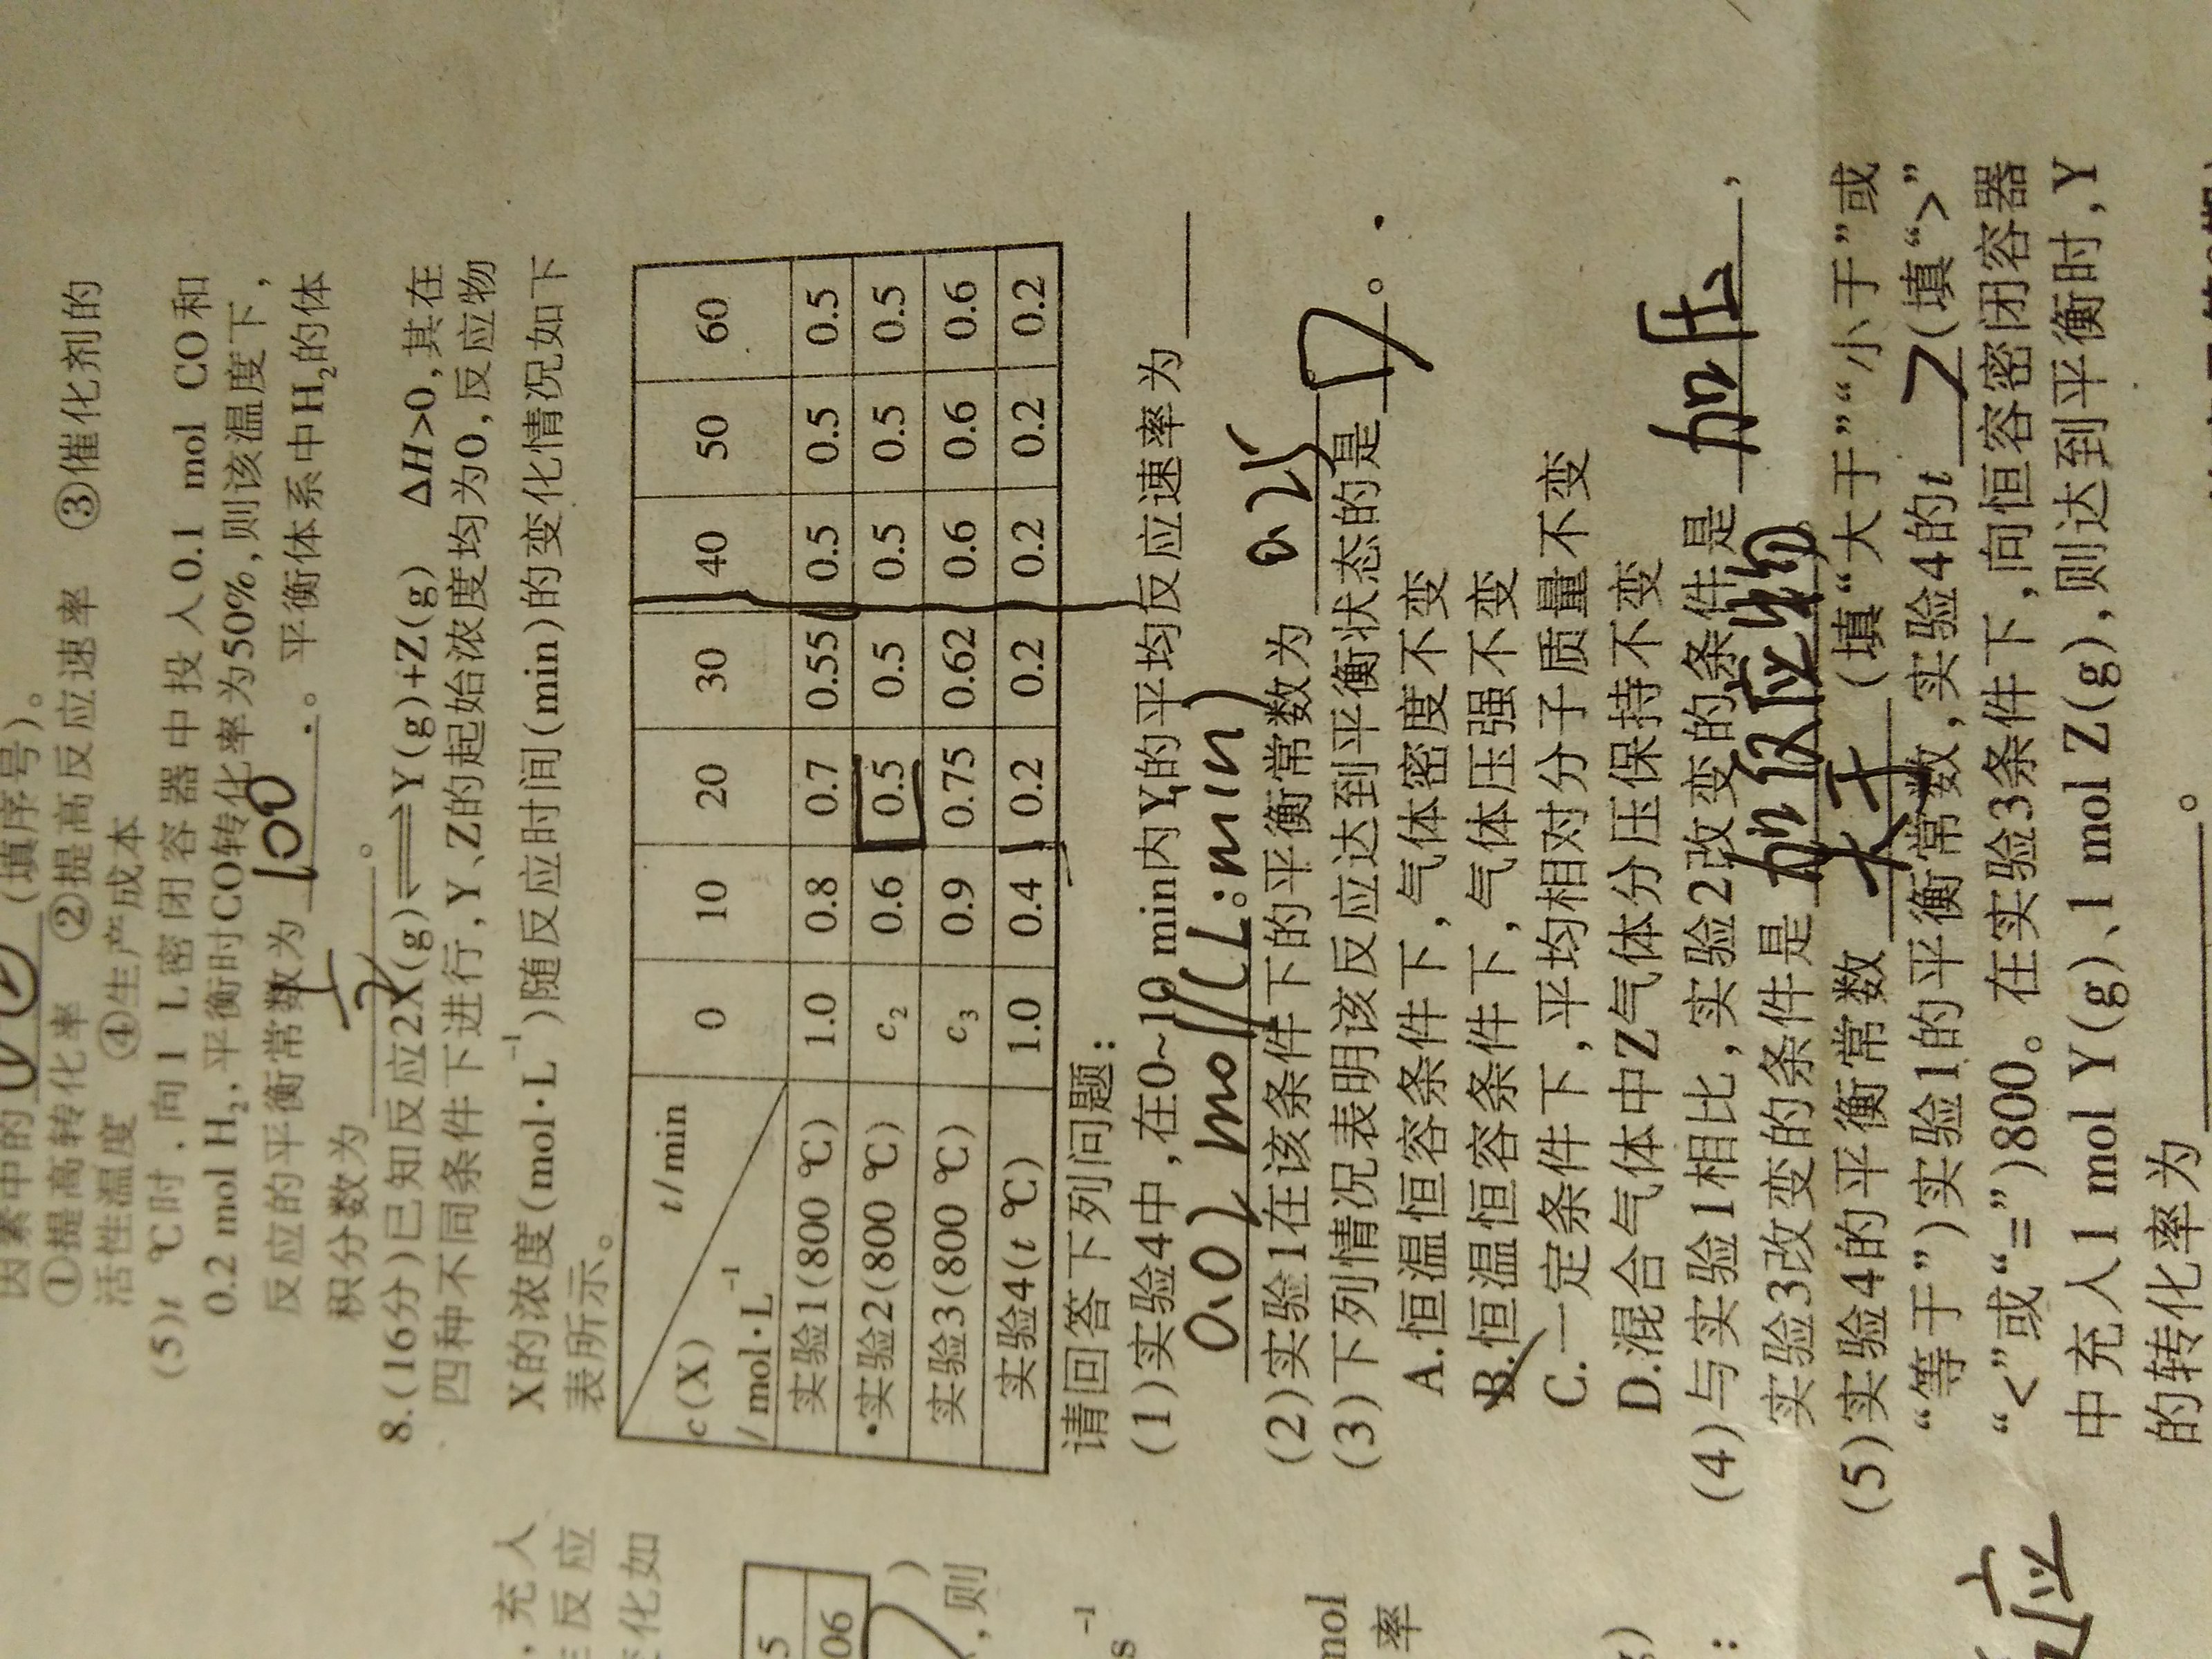 因素中的
(填序号)。
①提高转化率 ②提高反应速率 ③催化剂的
活性温度 ④生产成本
(5)t ℃时,向1 L密闭容器中投入0.1 mol CO和
0.2 mol H₂,平衡时CO转化率为50%,则该温度下,
反应的平衡常数为 100 。平衡体系中H₂的体
积分数为 。
8.(16分)已知反应2X(g)⇌Y(g)+Z(g) ΔH>0,其在
四种不同条件下进行,Y、Z的起始浓度均为0,反应物
X的浓度(mol·L⁻¹)随反应时间(min)的变化情况如下
表所示。
t/min
c(X)/mol·L⁻¹ 0 10 20 30 40 50 60
实验1(800 ℃) 1.0 0.8 0.7 0.55 0.5 0.5 0.5
·实验2(800 ℃) c₂ 0.6 0.5 0.5 0.5 0.5 0.5
实验3(800 ℃) c₃ 0.9 0.75 0.62 0.6 0.6 0.6
实验4(t ℃) 1.0 0.4 0.2 0.2 0.2 0.2 0.2
请回答下列问题:
(1)实验4中,在0~10 min内Y的平均反应速率为
0.02 mol/(L·min)
(2)实验1在该条件下的平衡常数为 0.25
(3)下列情况表明该反应达到平衡状态的是 D 。
A.恒温恒容条件下,气体密度不变
B.恒温恒容条件下,气体压强不变
C.一定条件下,平均相对分子质量不变
D.混合气体中Z气体分压保持不变
(4)与实验1相比,实验2改变的条件是 加压 ,
实验3改变的条件是 加反应物
(5)实验4的平衡常数 大于 (填“大于”“小于”或
“等于”)实验1的平衡常数,实验4的t (填“>”
“<”或“=”)800。在实验3条件下,向恒容密闭容器
中充入1 mol Y(g)、1 mol Z(g),则达到平衡时,Y
的转化率为 。
,充入
反应
变化如
5
06
)
,则
s⁻¹
mol
率
g)
:
应